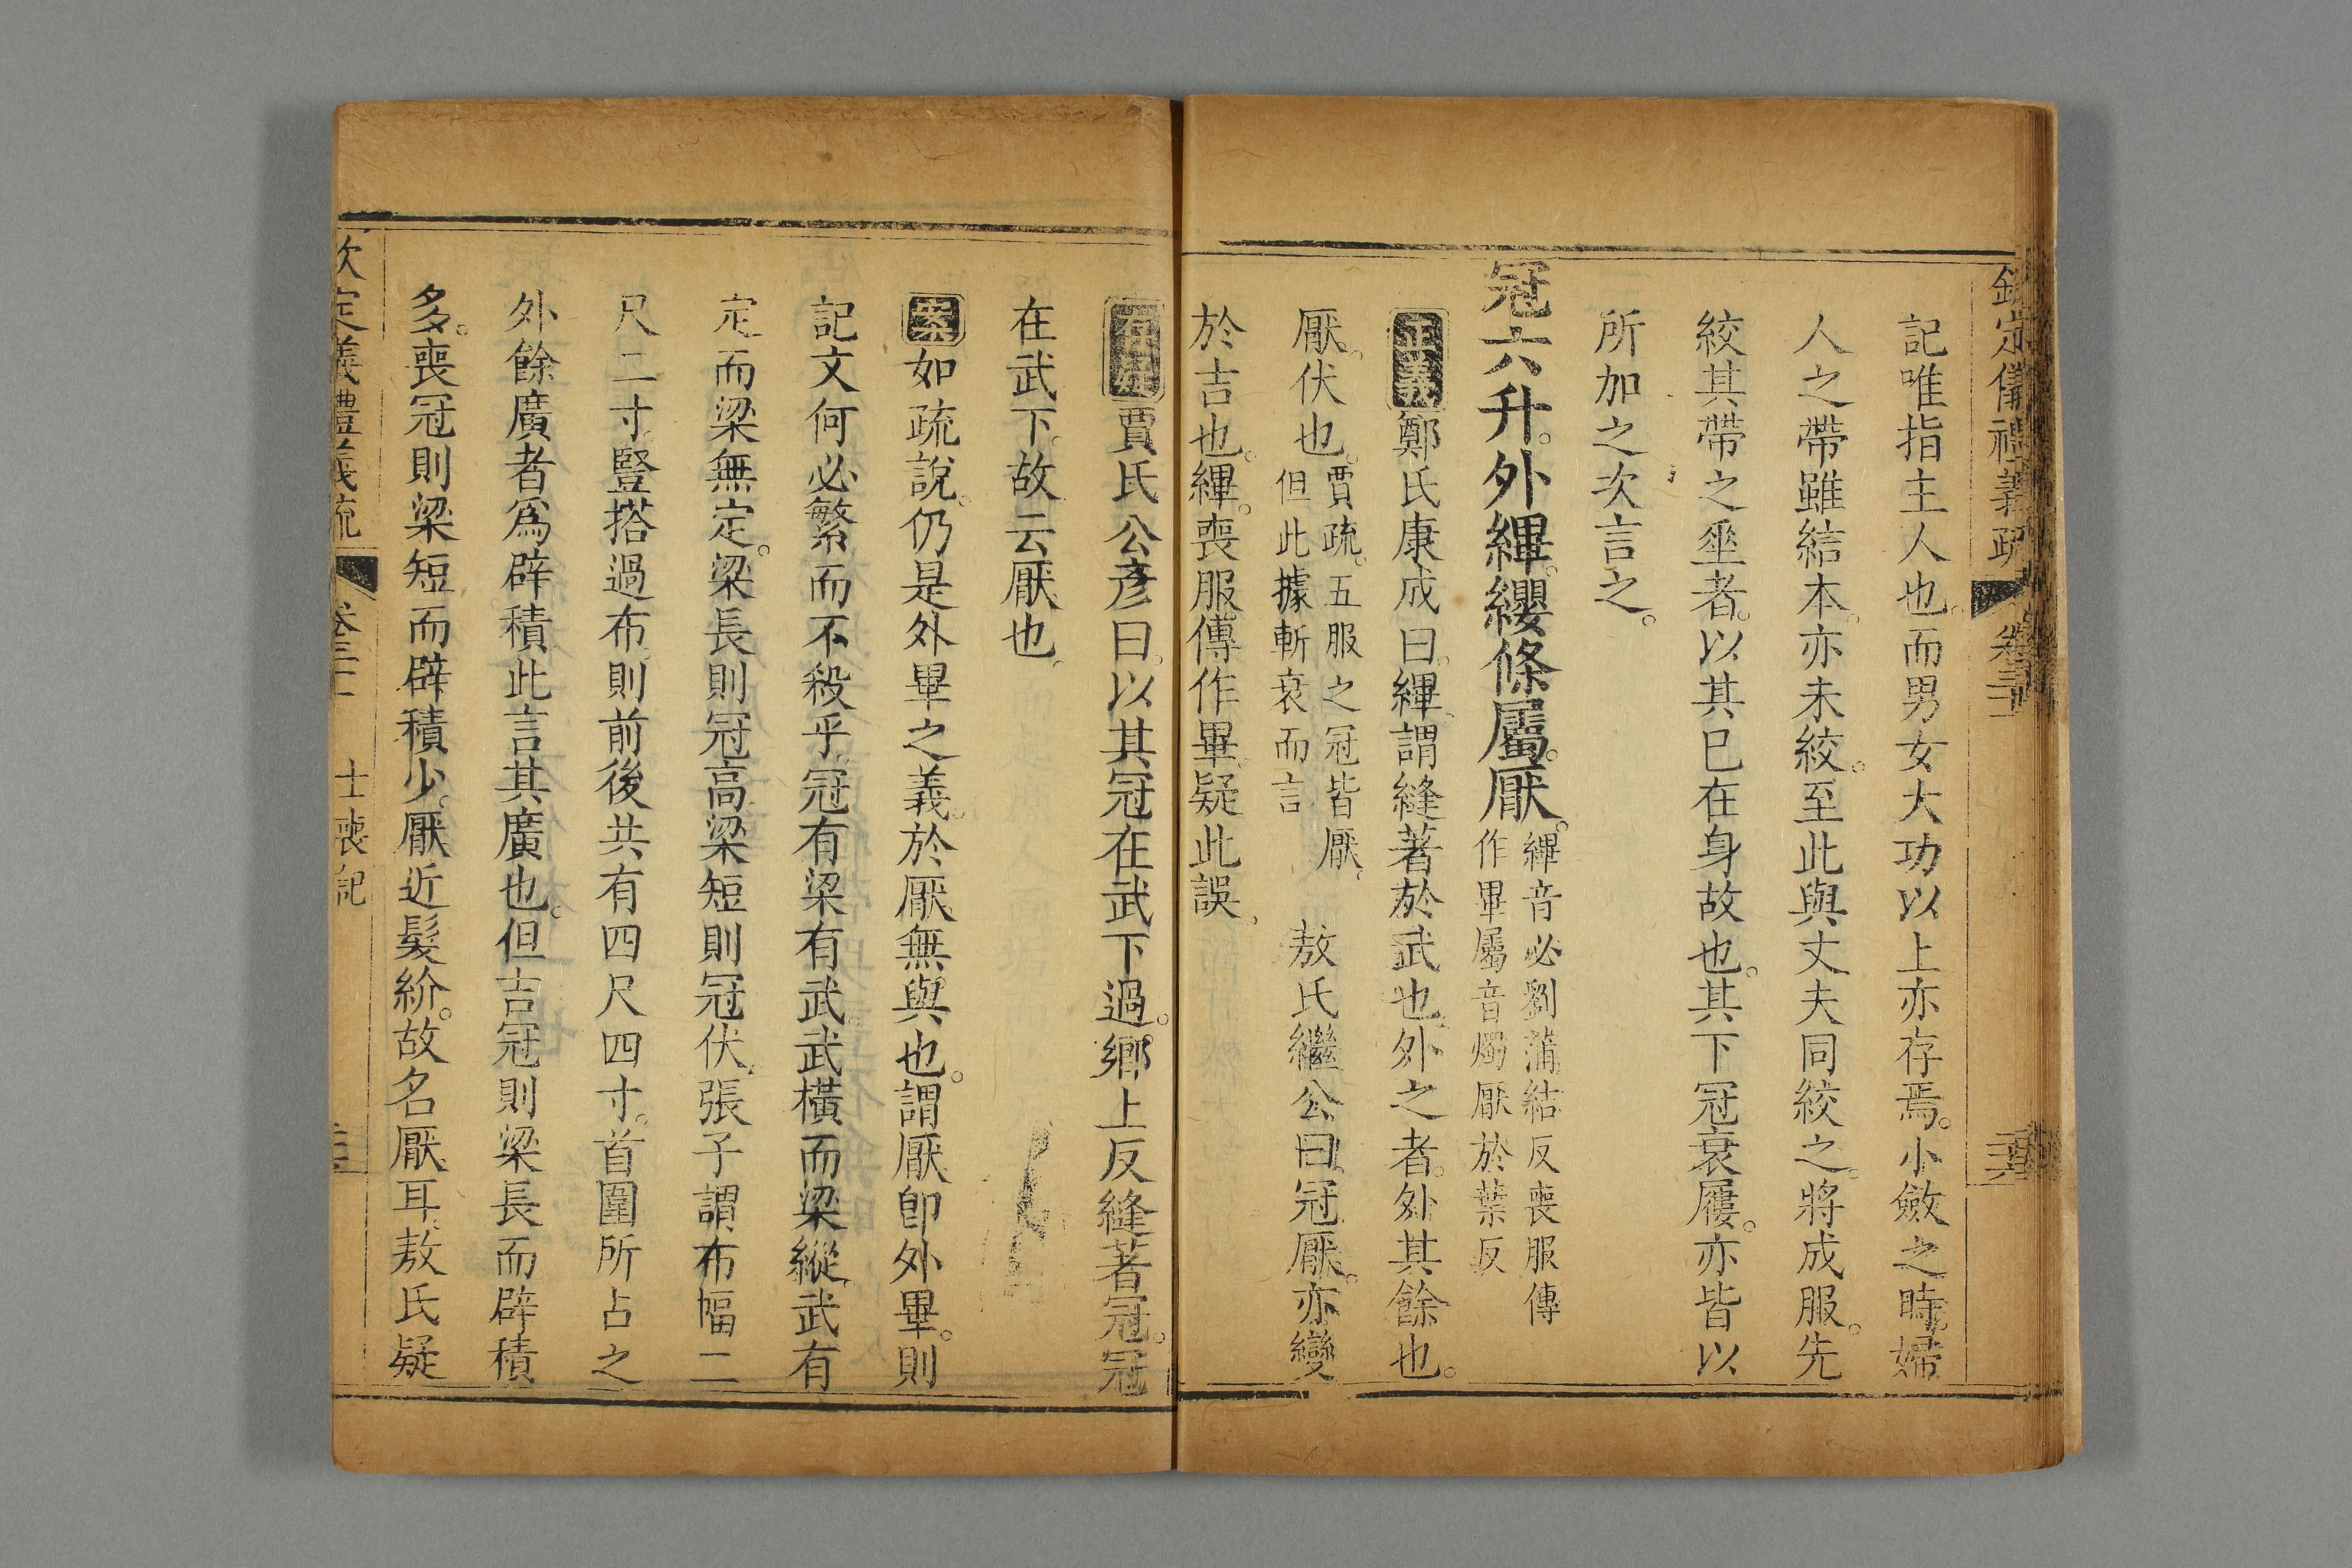 欽定儀禮義疏 卷三十一
記唯指主人也。而男女大功以上亦存焉。小斂之時。婦
人之帶雖結本。亦未絞。至此與丈夫同絞之。將成服。先
絞其帶之垂者。以其已在身故也。其下冠衰屨。亦皆以
所加之次言之。
冠六升。外縪。纓條屬。厭。縪音必劉蒲結反喪服傳
作畢屬音燭厭於葉反
正義鄭氏康成曰。縪、謂縫著於武也。外之者。外其餘也。
厭。伏也。賈疏。五服之冠皆厭。
但此據斬衰而言 敖氏繼公曰。冠厭。亦變
於吉也。縪。喪服傳作畢。疑此誤、
存疑賈氏公彥曰。以其冠在武下過。鄉上反縫著冠。冠
在武下。故云厭也。
案如疏說。仍是外畢之義。於厭無與也。謂厭卽外畢。則
記文何必繁而不殺乎。冠有梁有武。武橫而梁縱。武有
定而梁無定。梁長則冠高。梁短則冠伏。張子謂布幅二
尺二寸。豎搭過布。則前後共有四尺四寸。首圍所占之
外。餘廣者爲辟積。此言其廣也。但吉冠則梁長而辟積
多。喪冠則梁短而辟積少。厭近髮紒。故名厭耳。敖氏疑
欽定儀禮義疏 卷三十一 士喪記